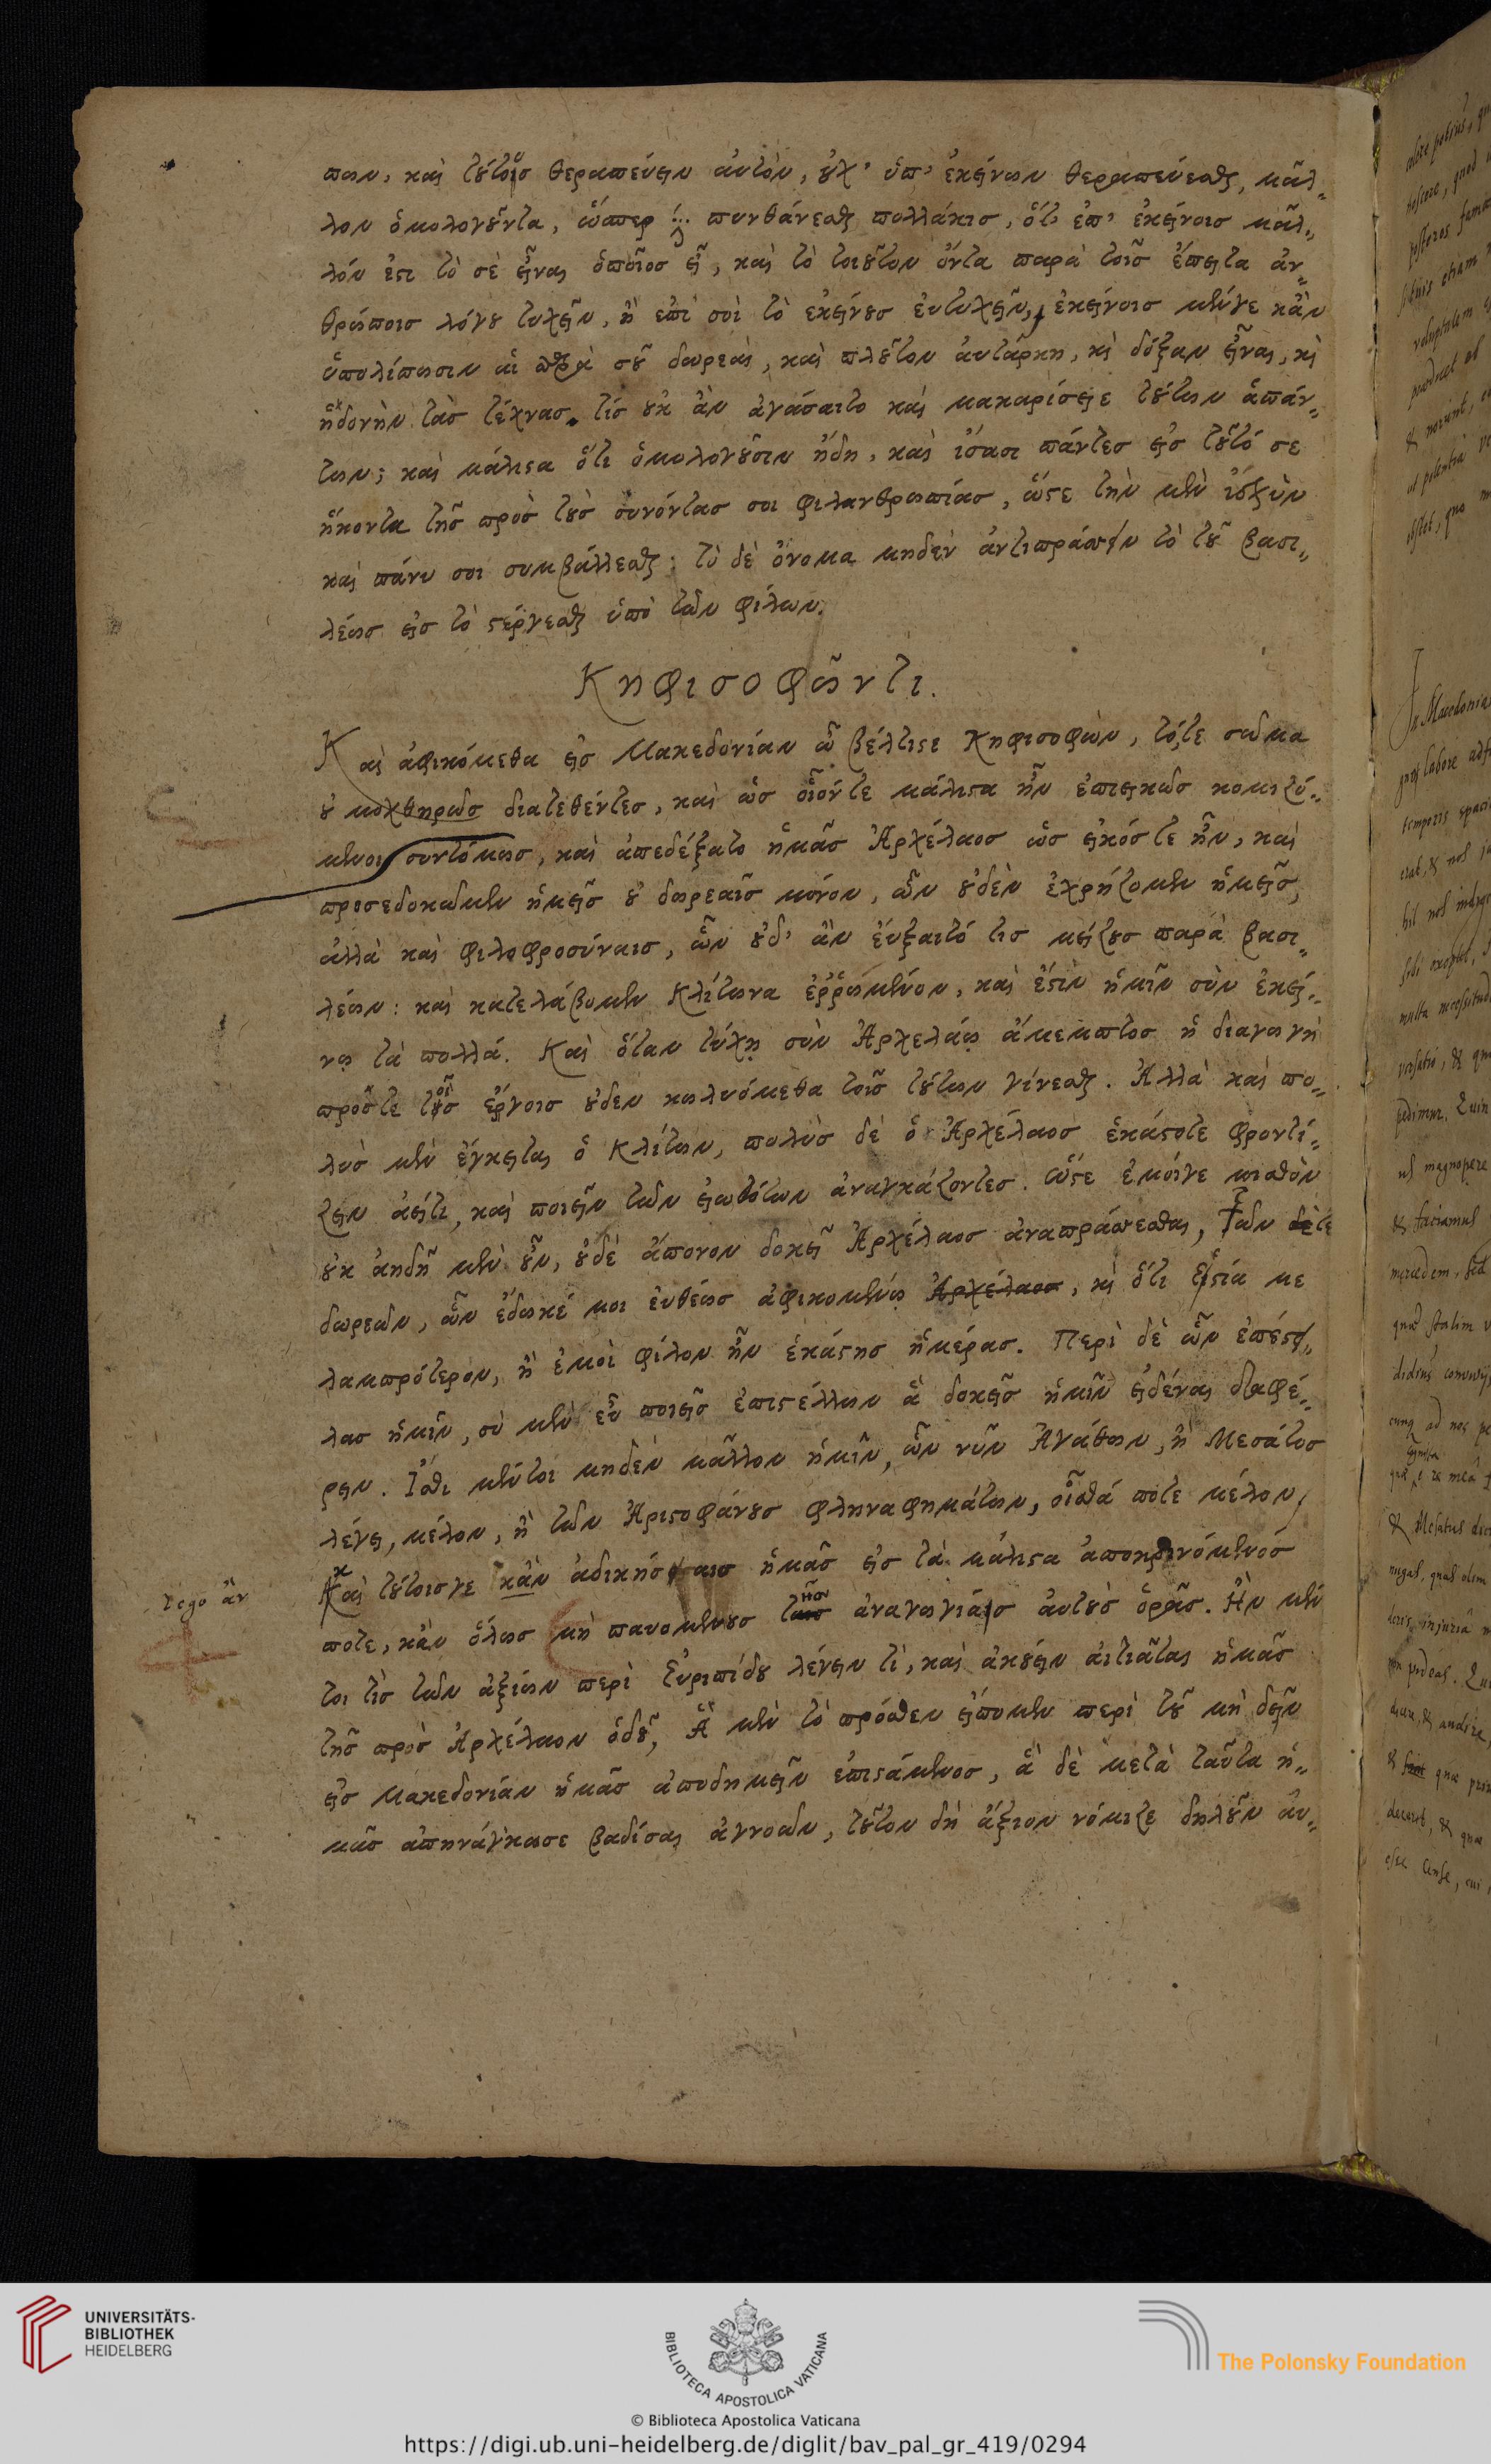 πων, καὶ τούτοις θεραπεύειν αὐτὸν, οὐχ' ὑπ' ἐκείνων θεραπεύεσθαι, μᾶλ-
λον ὁμολογοῦντα, ὥσπερ πυνθάνεσθαι πολλάκις, ὅτι ἐπ' ἐκείνοις μᾶλ-
λόν ἐστι τὸ σὲ εἶναι ὁποῖος εἶ, καὶ τὸ τοιοῦτον ὄντα παρὰ τοῖς ἔπειτα ἀν-
θρώποις λόγου τυχεῖν, ἢ ἐπὶ σοὶ τὸ ἐκείνους εὐτυχεῖν, ἐκείνοις μέν γε κἂν
ὑπολίπωσιν αἱ παρὰ σοῦ δωρεαὶ, καὶ πλοῦτον αὐτάρκη, καὶ δόξαν εἶναι, καὶ
ἡδονὴν τὰς τέχνας. τίς οὐκ ἂν ἀγάσαιτο καὶ μακαρίσειε τούτων ἁπάν-
των; καὶ μάλιστα ὅτι ὁμολογοῦσιν ἤδη, καὶ ἴσασι πάντες εἰς τοῦτό σε
ἥκοντα τῆς πρὸς τοὺς συνόντας σοι φιλανθρωπίας, ὥστε τὴν μὲν ἰσχὺν
καὶ πάνυ σοι συμβάλλεσθαι; τὸ δὲ ὄνομα μηδὲν ἀντιπράττειν τὸ τοῦ βασι-
λέως εἰς τὸ στέργεσθαι ὑπὸ τῶν φίλων.
Κηφισοφῶντι.
Καὶ ἀφικόμεθα εἰς Μακεδονίαν ὦ βέλτιστε Κηφισοφῶν, τότε σῶμα
οὐ μοχθηρῶς διατεθέντες, καὶ ὡς οἷόν τε μάλιστα ἦν ἐπιεικῶς κομιζό-
μενοι συντόμως, καὶ ἀπεδέξατο ἡμᾶς Ἀρχέλαος ὡς εἰκός τε ἦν, καὶ
προσεδοκῶμεν ἡμεῖς οὐ δωρεαῖς μόνον, ὧν οὐδὲν ἐχρῄζομεν ἡμεῖς,
ἀλλὰ καὶ φιλοφροσύναις, ὧν οὐδ' ἂν εὔξαιτό τις μείζους παρὰ βασι-
λέων: καὶ κατελάβομεν Κλίτωνα ἐῤῥωμένον, καὶ ἔστιν ἡμῖν σὺν ἐκεί-
νῳ τὰ πολλά. Καὶ ὅταν τύχῃ σὺν Ἀρχελάῳ ἄμεμπτος ἡ διαγωγὴ
πρός τε τοῖς ἔργοις οὐδὲν κωλυόμεθα τοῖς τούτων γίνεσθαι. Ἀλλὰ καὶ πο-
λὺς μὲν ἔγκειται ὁ Κλίτων, πολὺς δὲ ὁ Ἀρχέλαος ἑκάστοτε φροντί-
ζειν ἀεί τι, καὶ ποιεῖν τῶν εἰωθότων ἀναγκάζοντες. ὥστε ἔμοιγε μισθὸν
οὐκ ἀηδῆ μὲν οὖν, οὐδὲ ἄπονον δοκεῖ Ἀρχέλαος ἀναπράττεσθαι, τῶν τε
δωρεῶν, ὧν ἔδωκέ μοι εὐθέως ἀφικομένῳ Ἀρχέλαος, καὶ ὅτι ἑστιᾷ με
λαμπρότερον, ἢ ἐμοὶ φίλον ἦν ἑκάστης ἡμέρας. Περὶ δὲ ὧν ἐπέστει-
λας ἡμῖν, σὺ μὲν εὖ ποιεῖς ἐπιστέλλων ἃ δοκεῖς ἡμῖν εἰδέναι διαφέ-
ρειν. Ἴσθι μέντοι μηδὲν μᾶλλον ἡμῖν, ὧν νῦν Ἀγάθων, ἢ Μέσατος
λέγει, μέλον, ἢ τῶν Ἀριστοφάνους φληναφημάτων, οἶσθά ποτε μέλον,
Καὶ τούτοις γε κἂν ἀδικήσαις ἡμᾶς εἰς τὰ μάλιστα ἀποκρινόμενός
lego ἂν
ποτε, κἂν ὅλως μὴ παυομένους τῆς ἀναγωγίας αὐτοὺς ὁρᾷς. Ἢν μέν
τοι τὶς τῶν ἀξίων περὶ Εὐριπίδου λέγειν τὶ, καὶ ἀκούειν αἰτιᾶται ἡμᾶς
τῆς πρὸς Ἀρχέλαον ὁδοῦ, Ἃ μὲν τὸ πρόσθεν εἴπομεν περὶ τοῦ μὴ δεῖν
εἰς Μακεδονίαν ἡμᾶς ἀποδημεῖν ἐπιστάμενος, ἃ δὲ μετὰ ταῦτα ἡ-
μᾶς ἀπηνάγκασε βαδίσαι ἀγνοῶν, τοῦτον δὴ ἄξιον νόμιζε δηλοῦν αὐ-
UNIVERSITÄTS-
BIBLIOTHEK
HEIDELBERG
BIBLIOTECA APOSTOLICA VATICANA
The Polonsky Foundation
© Biblioteca Apostolica Vaticana
https://digi.ub.uni-heidelberg.de/diglit/bav_pal_gr_419/0294